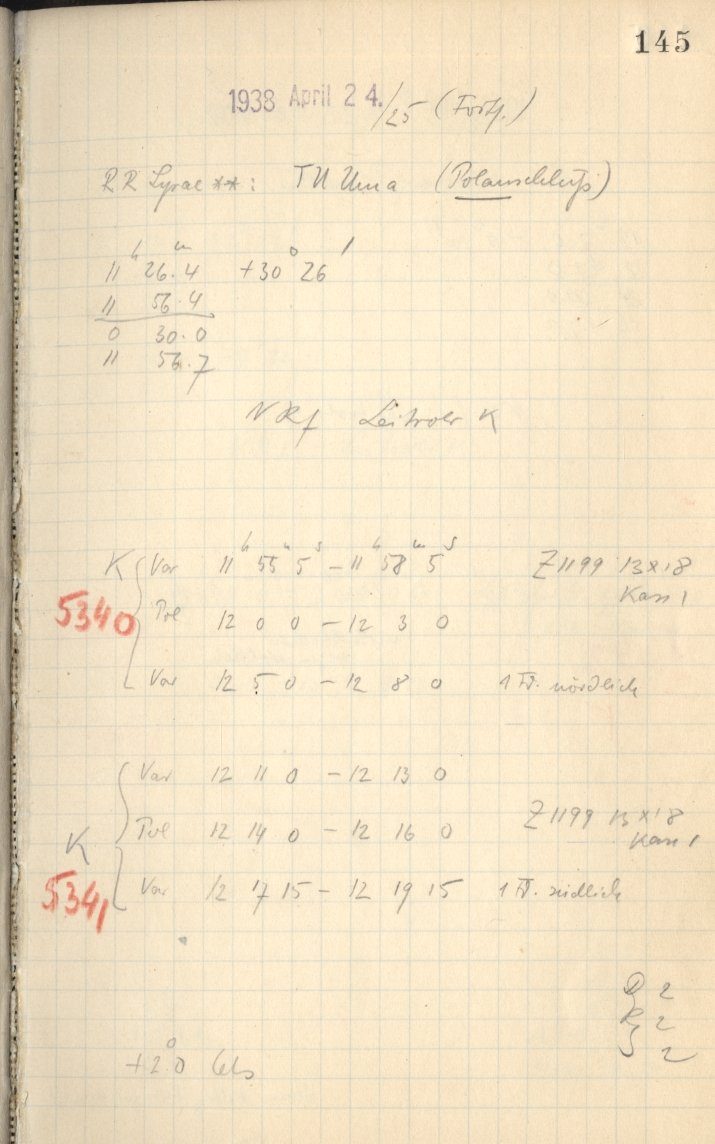 145
1938 April 24./25 (Forts.)
RR Lyrae **: TU Uma (Polanschluß)
11h 26m.4 +30° 26'
11 56.4
0 30.0
11 56.7
Leitrohr K
K Var 11h 55m 5s – 11h 58m 5s Z1199 13x18
Kass 1
5340 Pol 12 0 0 – 12 3 0
Var 12 5 0 – 12 8 0 1 Fd. nördlich
Var 12 11 0 – 12 13 0
K Pol 12 14 0 – 12 16 0 Z1199 13x18
Kass 1
5341 Var 12 17 15 – 12 19 15 1 Fd. südlich
2
2
2
+2°.0 Cels